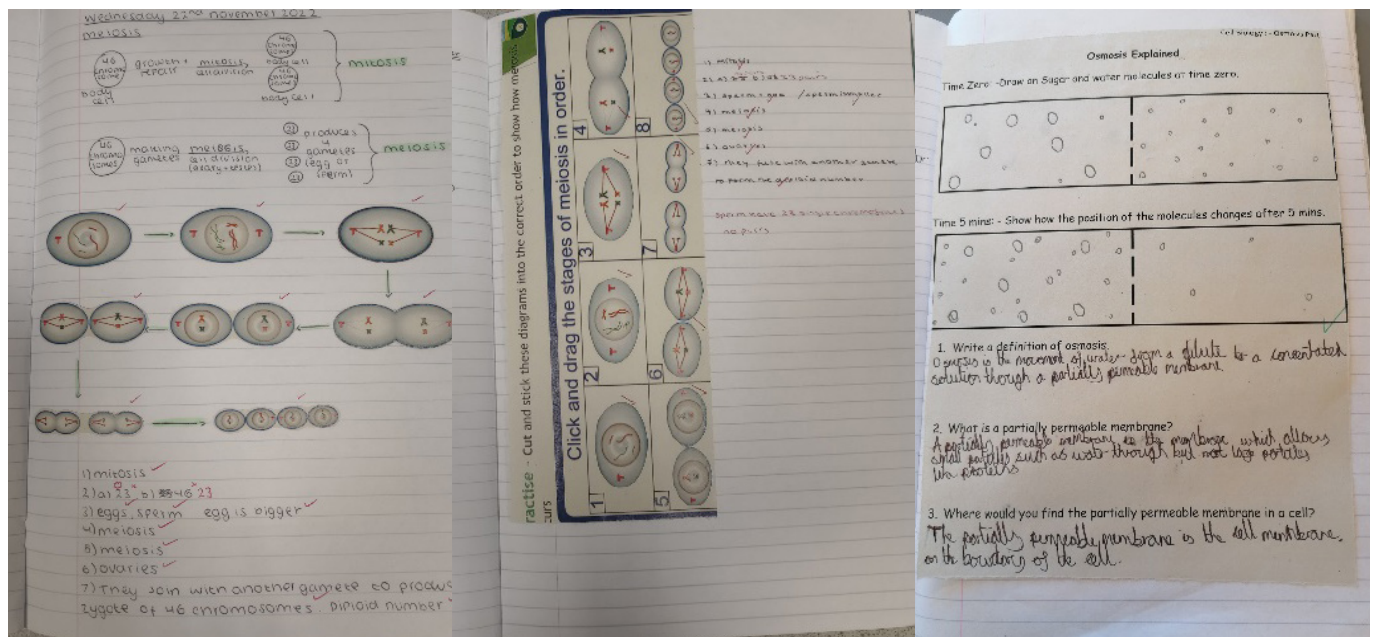 Wednesday 23rd november 2022
meiosis
46 chromo somes
body cell
growth + repair
mitosis,
cell division
46 chromo somes
body cell
46 chromo somes
body cell
mitosis
46 chromo somes
making gametes
meiosis,
cell division
(ovary + testes)
23
23
23
23
produces
4
gametes
(egg or
sperm)
meiosis
1) mitosis
2) a) 23 b) 46 23
3) eggs, sperm egg is bigger
4) meiosis
5) meiosis
6) ovaries
7) They join with another gamete to
zygote of 46 chromosomes. Diploid number
ractise - Cut and stick these diagrams into the correct order to show how meiosis
curs
Click and drag the stages of meiosis in order.
1
2
3
4
5
6
7
8
1) mitosis
2) a) b) 23 pairs
3) sperm + egg /
4) meiosis
5) meiosis
6) ovaries
7) They fuse with another gamete
to form the number
sperm have 23 single chromosomes
no pairs
Osmosis Explained
Time Zero: -Draw on Sugar and water molecules at time zero.
Time 5 mins: - Show how the position of the molecules changes after 5 mins.
1. Write a definition of osmosis.
is the movement of water from a dilute to a concentrated
solution through a partially permeable membrane.
2. What is a partially permeable membrane?
A partially permeable membrane is the membrane which allows
small particles such as water through but not large particles
like proteins
3. Where would you find the partially permeable membrane in a cell?
The partially permeable membrane is the cell membrane,
on the boundary of the cell.